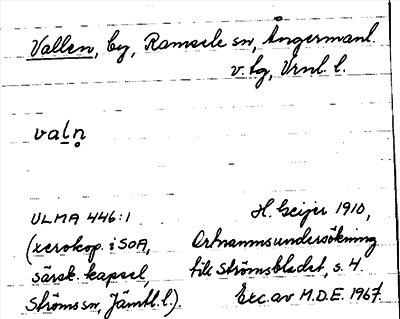 Vallen, by, Ramsele sn, Ångermanl.
v. lg, Vrnl. l.
valn̥
ULMA 446:1
(xerokop. i SOA,
särsk. kapsel,
Ströms sn, Jämtl. l.).
H. Geijer 1910,
Ortnamnsundersökning
till Strömsbladet, s. 4.
Exc. av M.D.E. 1967.